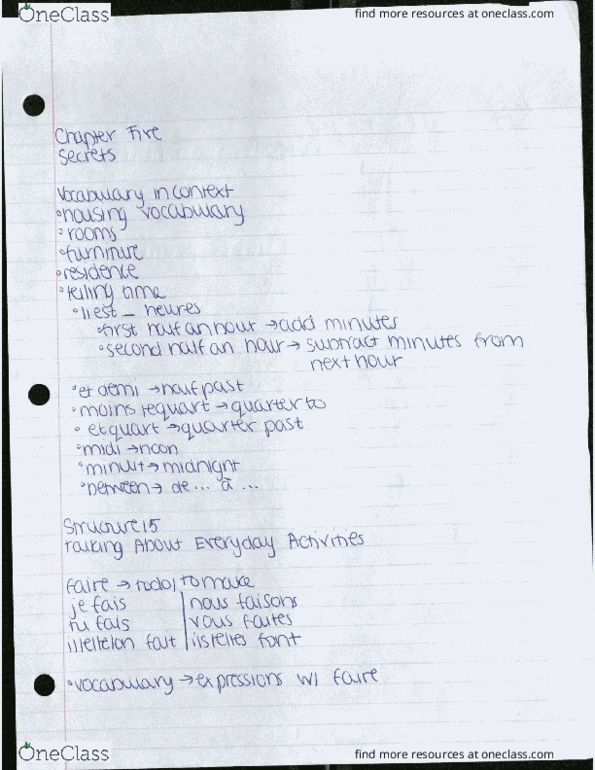 OneClass find more resources at oneclass.com
Chapter Five
Secrets
Vocabulary in context
•housing vocabulary
•rooms
•furniture
•residence
•telling time
•il est _ heures
•first half an hour → add minutes
•second half an hour → subtract minutes from
next hour
•et demi → half past
•moins le quart → quarter to
• et quart → quarter past
•midi → noon
•minuit → midnight
•between → de ... à ...
Structure 15
Talking About Everyday Activities
faire → to do / to make
je fais | nous faisons
tu fais | vous faites
il/elle/on fait | ils/elles font
•vocabulary → expressions w/ faire
OneClass find more resources at oneclass.com